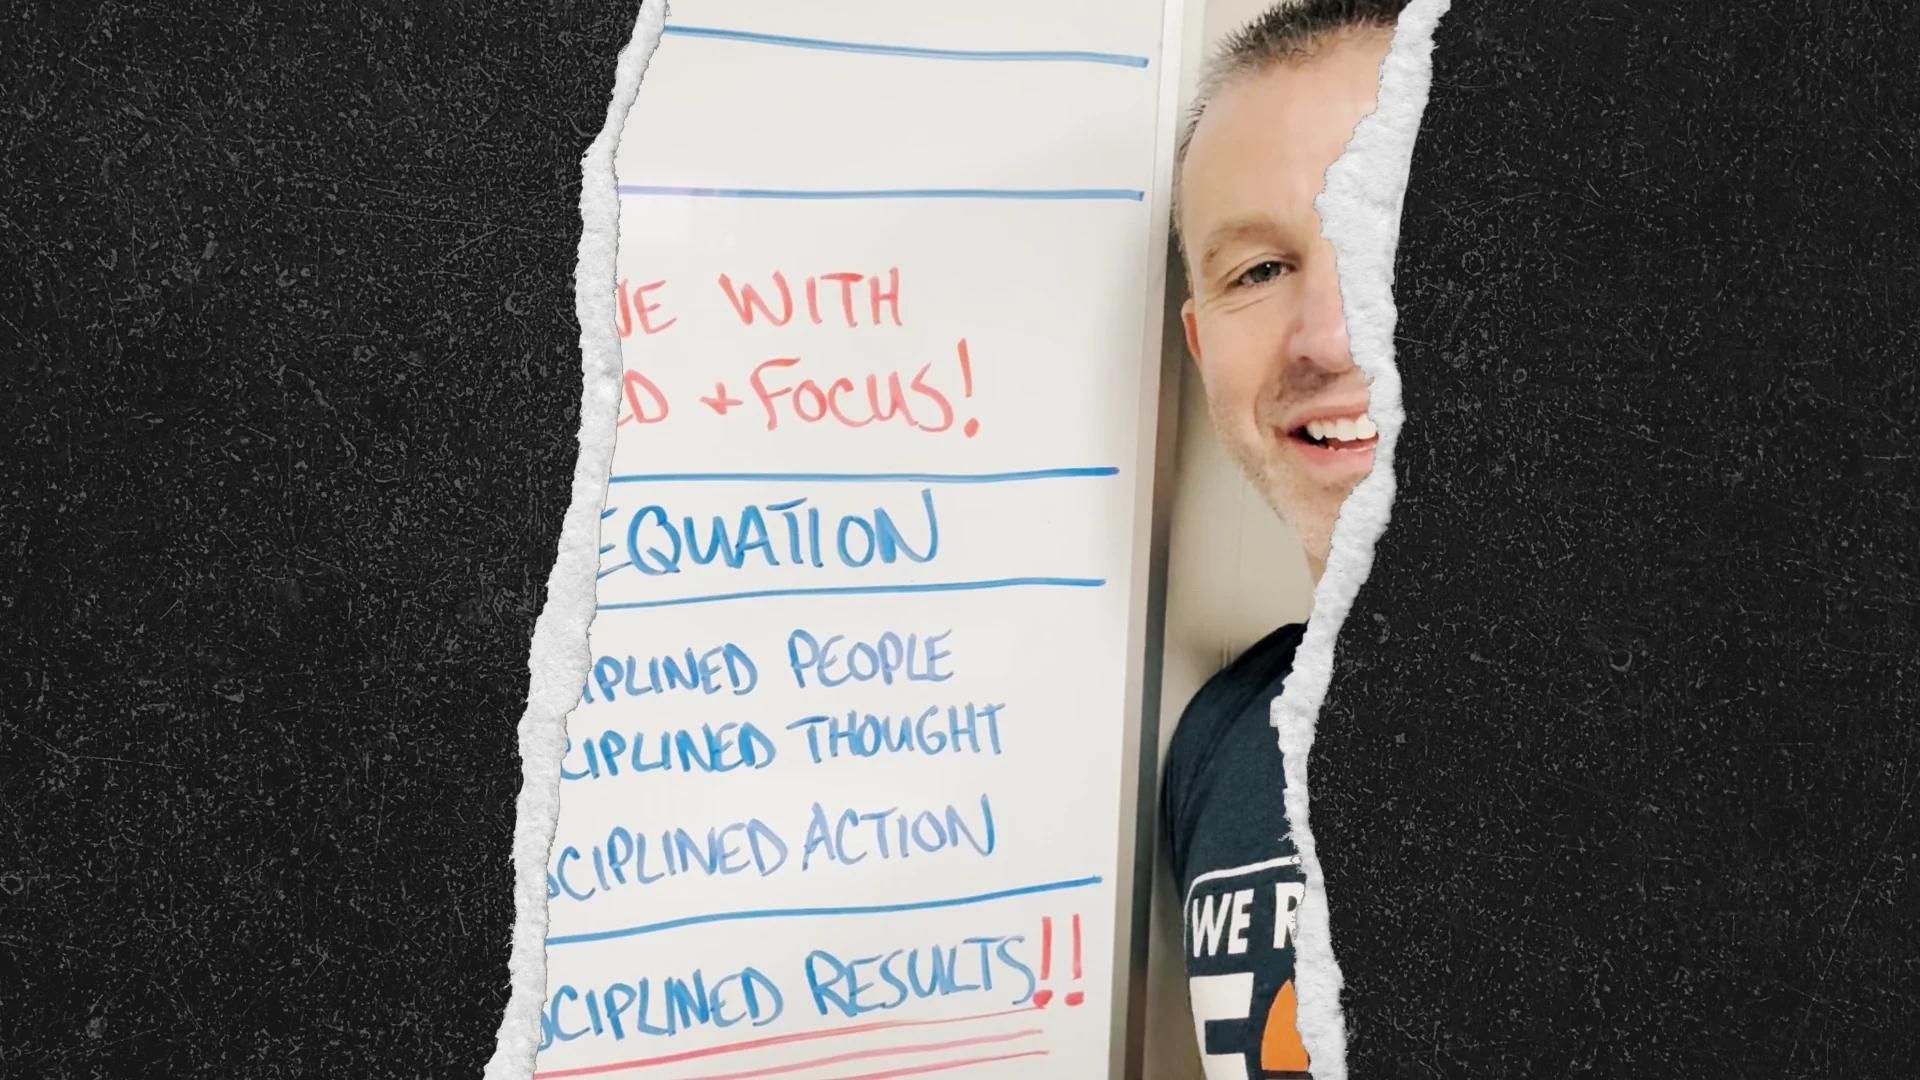 VE WITH
ED + FOCUS!
EQUATION
IPLINED PEOPLE
CIPLINED THOUGHT
SCIPLINED ACTION
SCIPLINED RESULTS!!
WE R